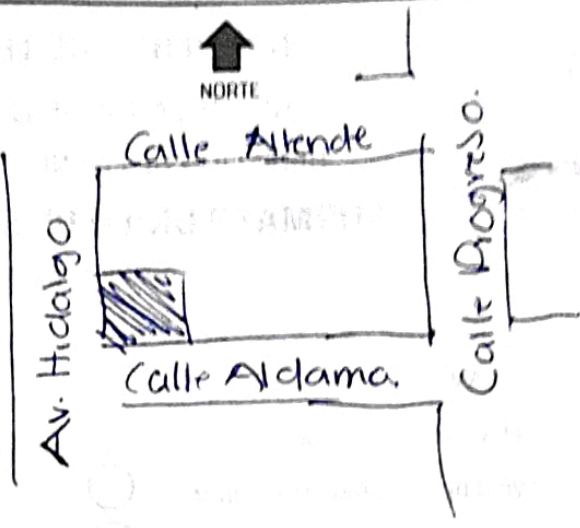 NORTE
Calle Allende
Av. Hidalgo
Calle Progreso.
Calle Aldama.